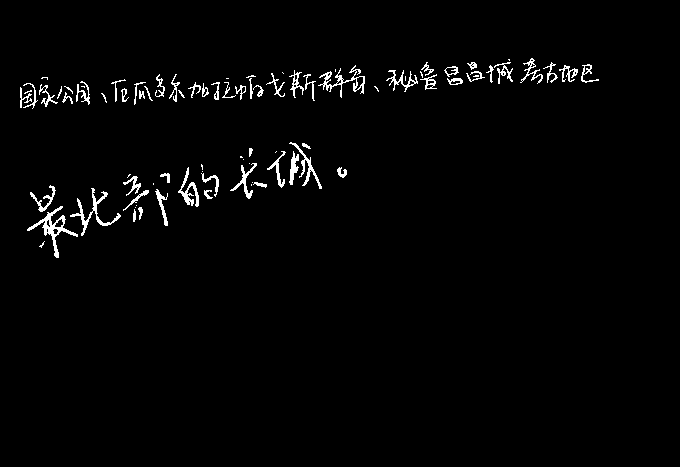 国家公园、厄瓜多尔加拉帕戈斯群岛、秘鲁昌昌城考古地区
最北部的长城。